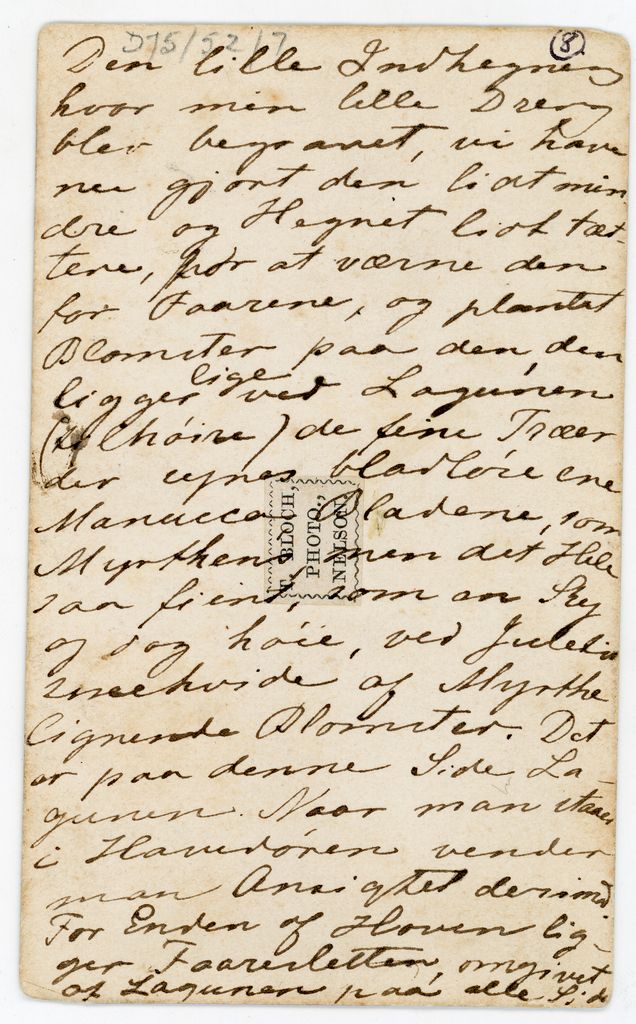 D75/52/7
8
Den lille Indhegning
hvor min lille Dreng
blev begravet, vi have
nu gjort den lidt min
dre og Hegnet lidt tæt-
tere, for at værne den
for Faarene, og plantet
Blomster paa den, den
ligger lige ved Lagunen
de fine Træer
der synes bladløse ere
Manucca Bladene, som
Myrthens, men det Hele
saa fient, som en Sky
og dog høie, ved Juletid
sneehvide af Myrthe
lignende Blomster. Det
er paa denne Side La-
gunen. Naar man staaer
i Havedøren vender
man Ansigtet derimod
For Enden af Haven lig-
ger Faaresletten, omgivet
af Lagunen paa alle Sider
F. BLOCH,
PHOTO.,
NELSON.